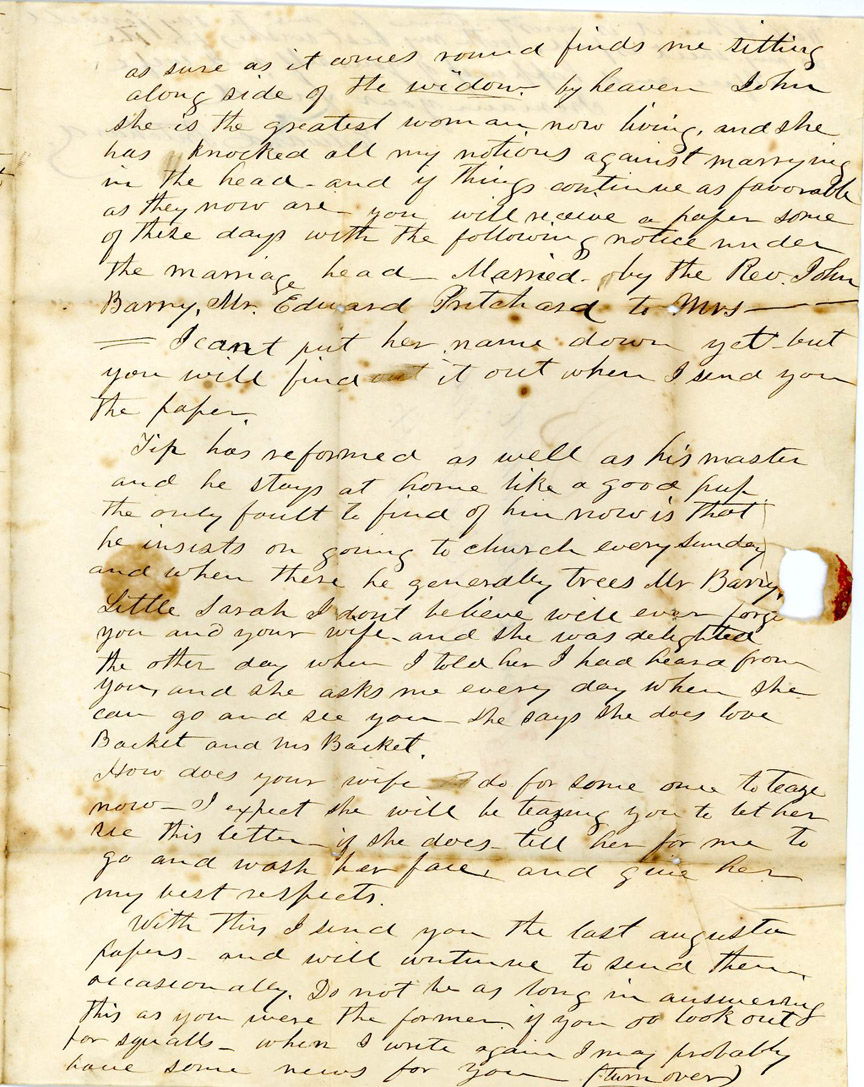 as sure as it comes round finds me sitting
along side of the widow - by heaven John
she is the greatest woman now living, and she
has knocked all my notions against marrying
in the head - and if things continue as favorable
as they now are - you will receive a paper some
of these days with the following notice under
the marriage head - Married - by the Rev. John
Barry, Mr. Edward Pritchard to Mrs — —
— I cant put her name down yet - but
you will find out it out when I send you
the paper
Tip has reformed as well as his master
and he stays at home like a good pup
the only fault to find of him now is that
he insists on going to church every sunday
and when there he generally trees Mr Barry,
Little Sarah I dont believe will ever forge
you and your wife - and she was delighted
the other day when I told her I had heard from
you, and she asks me every day when she
can go and see you - she says she does love
Backet and Mrs Backet.
How does your wife do for some one to teaze
now - I expect she will be teazing you to let her
see this letter - if she does - tell her for me to
go and wash her face, and give her
my best respects.
With this I send you the last augusta
papers - and will continue to send them
occasionally. Do not be as long in answering
this as you were the former, if you do look out
for squalls - when I write again I may probably
have some news for you (turn over)